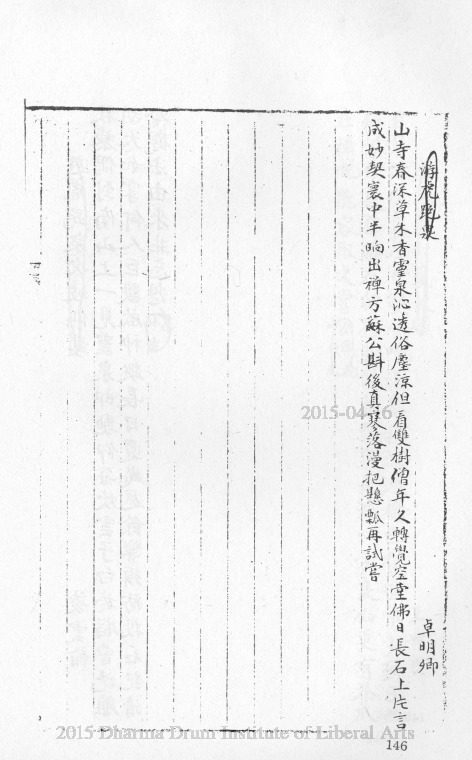 游虎跑泉
卓明卿
山寺春深草木香靈泉沁透俗塵涼但看雙樹僧年久轉覺空堂佛日長石上片言
成妙契裏中半晌出禪方蘇公斟後真寥落漫把懸瓢再試嘗
2015-04-16
2015 Dharma Drum Institute of Liberal Arts
146